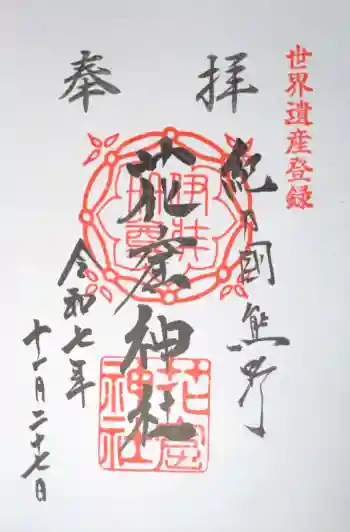 世界遺産登録
奉拝
紀の國熊野
花窟神社
令和七年
十一月二十七日
伊弉
冊尊
花窟
神社